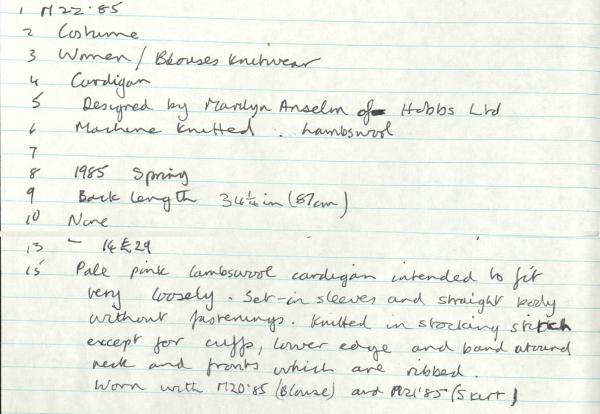 1 M22.85
2 Costume
3 Women / Blouses Knitwear
4 Cardigan
5 Designed by Marilyn Anselm of Hobbs Ltd
6 Machine knitted . Lambswool
7
8 1985 Spring
9 Back length 34¼ in (87cm)
10 None
13 - £29
15 Pale pink lambswool cardigan intended to fit
very loosely. Set-in sleeves and straight body
without fastenings. Knitted in stocking stitch
except for cuffs, lower edge and band around
neck and fronts which are ribbed.
Worn with M20.85 (Blouse) and M21.85 (Skirt)